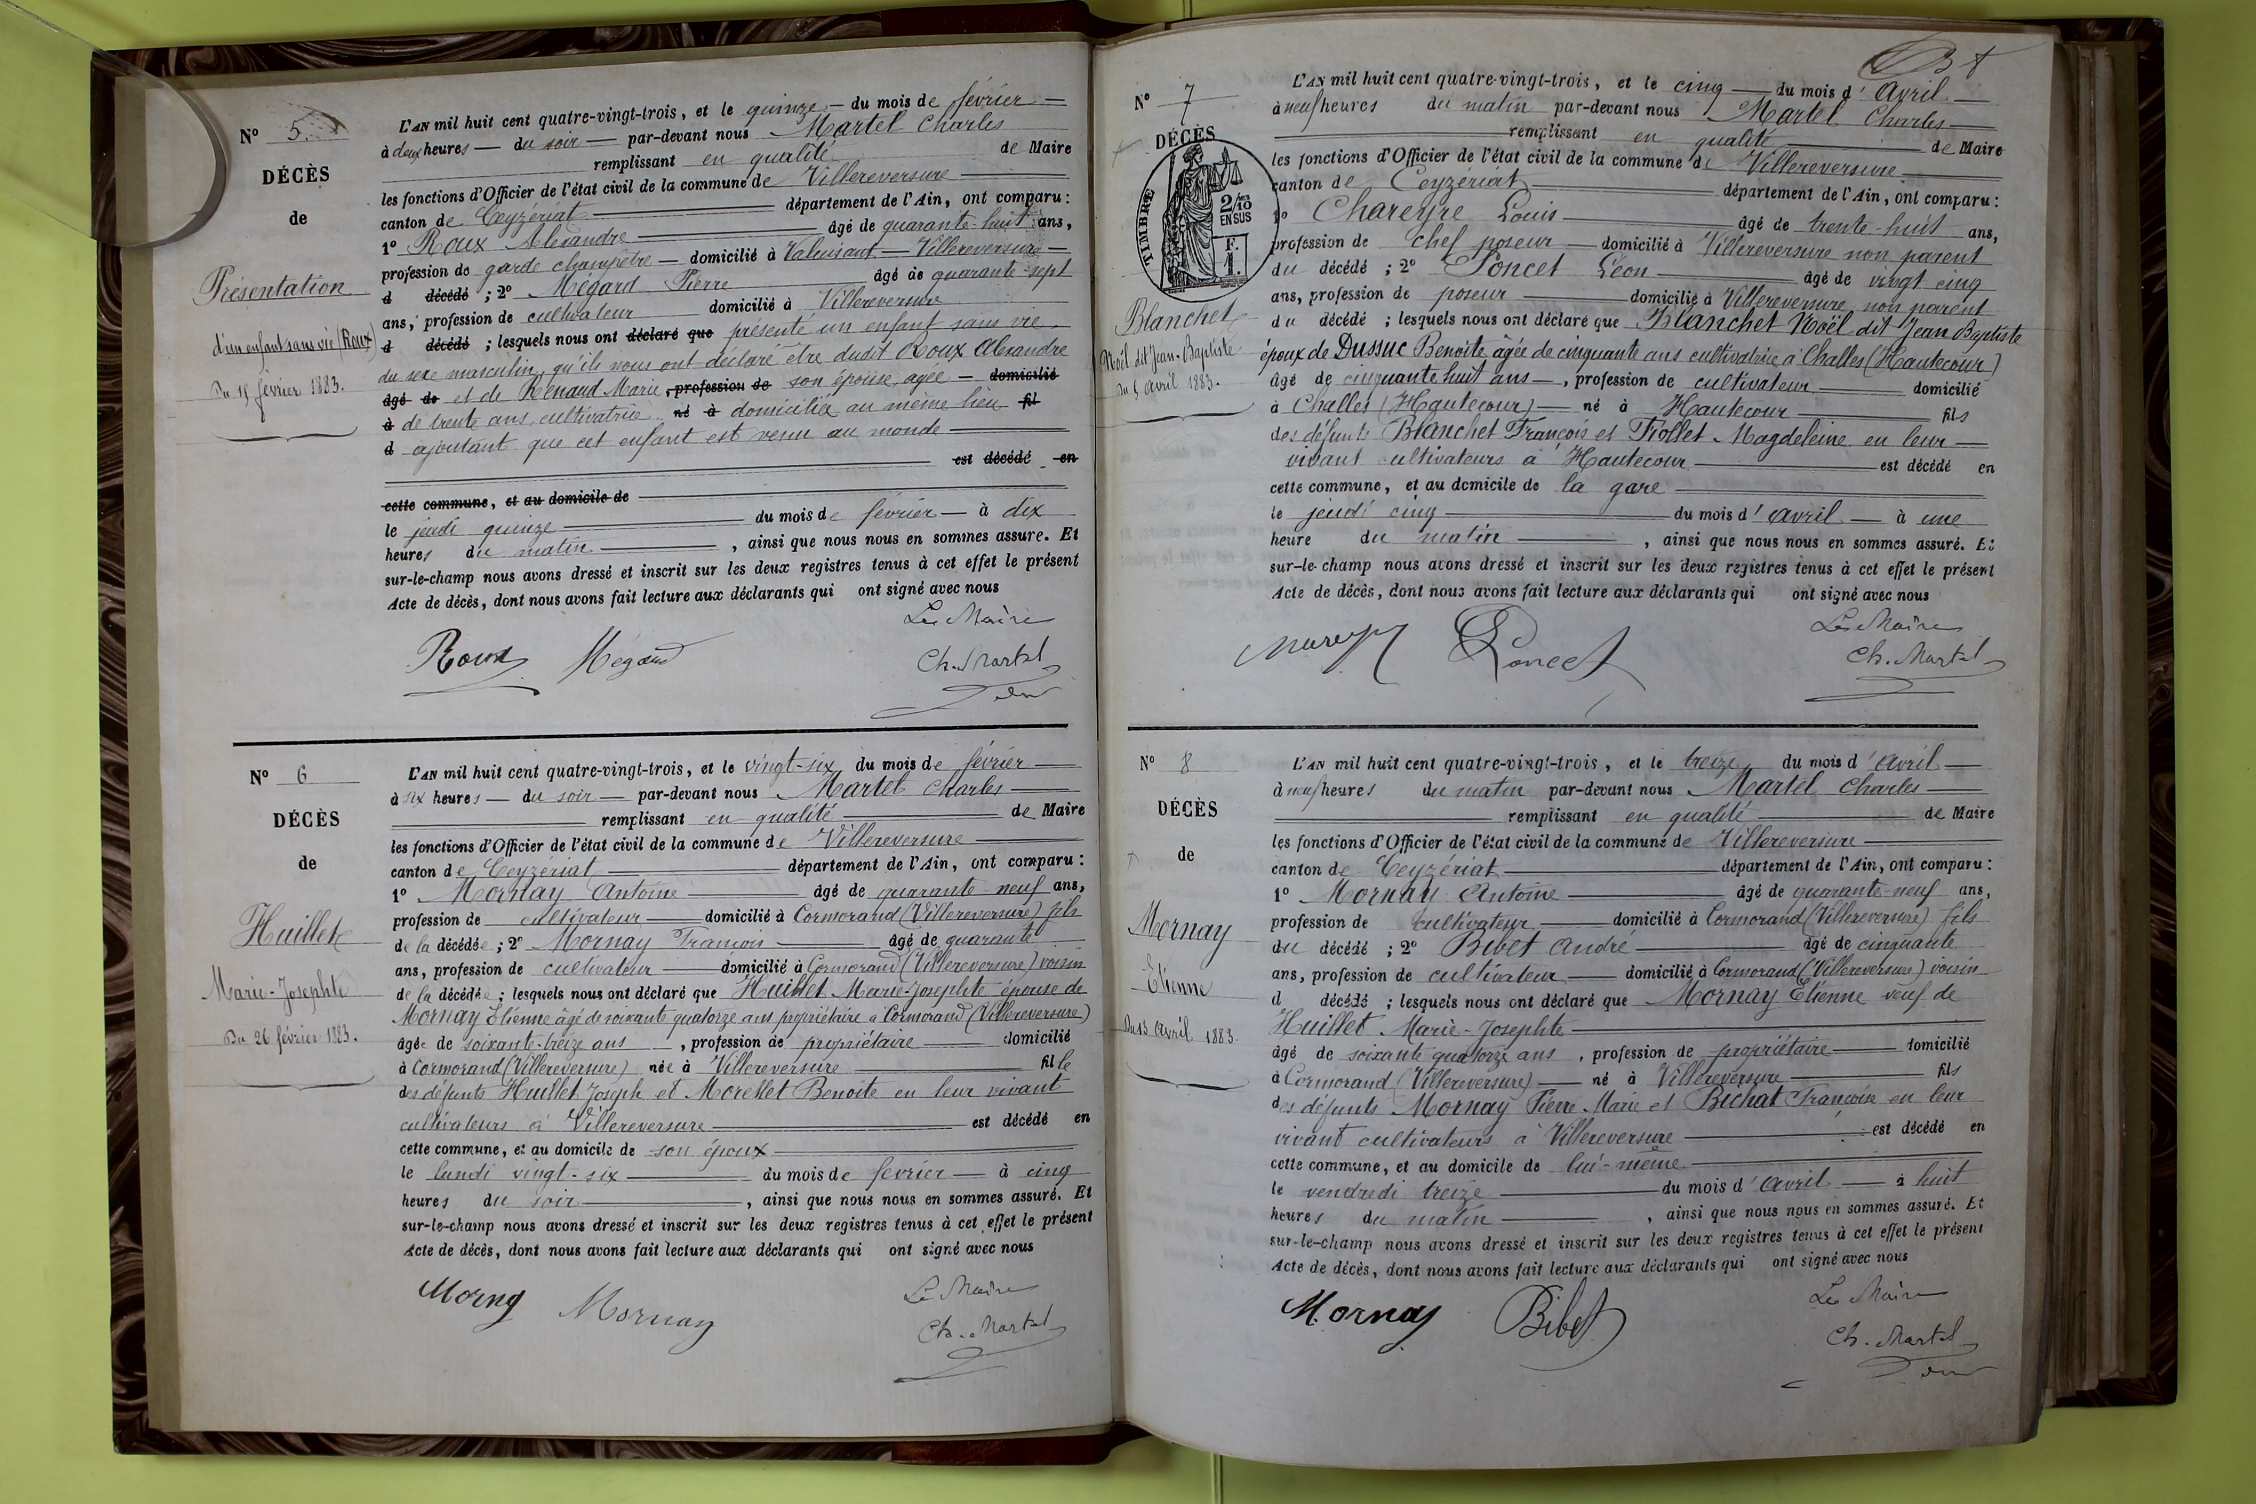 N° 5.
DÉCÈS
de
Présentation
d'un enfant sans vie (Roux)
Du 15 février 1883.
L'AN mil huit cent quatre-vingt-trois, et le quinze du mois de février
à deux heures du soir par-devant nous Martel Charles
remplissant en qualité de Maire
les fonctions d'Officier de l'état civil de la commune de Villereversure
canton de Ceyzériat département de l'Ain, ont comparu :
1° Roux Alexandre âgé de quarante-huit ans,
profession de garde champêtre domicilié à Valeusout Villereversure
d décédé ; 2° Mégard Pierre âgé de quarante-sept
ans, profession de cultivateur domicilié à Villereversure
d décédé ; lesquels nous ont déclaré que présenté un enfant sans vie
du sexe masculin, qu'ils nous ont déclaré être dudit Roux Alexandre
âgé de et de Renaud Marie, profession de son épouse, agée domicilié
à de trente ans cultivatrice né à domiciliée au même lieu fil
d ajoutant que cet enfant est venu au monde
est décédé en
cette commune, et au domicile de
le jeudi quinze du mois de février à dix
heures du matin, ainsi que nous nous en sommes assuré. Et
sur-le-champ nous avons dressé et inscrit sur les deux registres tenus à cet effet le présent
Acte de décès, dont nous avons fait lecture aux déclarants qui ont signé avec nous
Le Maire
Roux Mégard Ch. Martel
N° 6
DÉCÈS
de
Huillet
Marie-Josephte
Du 26 février 1883.
L'AN mil huit cent quatre-vingt-trois, et le vingt-six du mois de février
à six heures du soir par-devant nous Martel Charles
remplissant en qualité de Maire
les fonctions d'Officier de l'état civil de la commune de Villereversure
canton de Ceyzériat département de l'Ain, ont comparu :
1° Mornay Antoine âgé de quarante-neuf ans,
profession de cultivateur domicilié à Cormorand (Villereversure) fils
de la décédée ; 2° Mornay François âgé de quarante
ans, profession de cultivateur domicilié à Cormorand (Villereversure) voisin
de la décédée ; lesquels nous ont déclaré que Huillet Marie-Josephte épouse de
Mornay Etienne âgé de soixante quatorze ans propriétaire à Cormorand (Villereversure)
âgée de soixante-treize ans, profession de propriétaire domicilié
à Cormorand (Villereversure) née à Villereversure fille
des défunts Huillet Joseph et Morellet Benoite en leur vivant
cultivateurs à Villereversure est décédé en
cette commune, et au domicile de son époux
le lundi vingt-six du mois de février à cinq
heures du soir, ainsi que nous nous en sommes assuré. Et
sur-le-champ nous avons dressé et inscrit sur les deux registres tenus à cet effet le présent
Acte de décès, dont nous avons fait lecture aux déclarants qui ont signé avec nous
Le Maire
Morny Mornay Ch. Martel
N° 7
DÉCÈS
TIMBRE
2/10 EN SUS
F. 1.
Blanchet
Noël dit Jean-Baptiste
Du 5 avril 1883.
L'AN mil huit cent quatre-vingt-trois, et le cinq du mois d'avril
à neuf heures du matin par-devant nous Martel Charles
remplissant en qualité de Maire
les fonctions d'Officier de l'état civil de la commune de Villereversure
canton de Ceyzériat département de l'Ain, ont comparu :
1° Chareyre Louis âgé de trente-huit ans,
profession de chef poseur domicilié à Villereversure non parent
du décédé ; 2° Poncet Léon âgé de vingt cinq
ans, profession de poseur domicilié à Villereversure non parent
du décédé ; lesquels nous ont déclaré que Blanchet Noël dit Jean Baptiste
époux de Dussuc Benoite âgée de cinquante ans cultivatrice à Challes (Hautecour)
âgé de cinquante huit ans, profession de cultivateur domicilié
à Challes (Hautecour) né à Hautecour fils
des défunts Blanchet François et Trollet Magdeleine en leur
vivant cultivateurs à Hautecour est décédé en
cette commune, et au domicile de la gare
le jeudi cinq du mois d'avril à une
heure du matin, ainsi que nous nous en sommes assuré. Et
sur-le-champ nous avons dressé et inscrit sur les deux registres tenus à cet effet le présent
Acte de décès, dont nous avons fait lecture aux déclarants qui ont signé avec nous
Le Maire
Poncet Ch. Martel
N° 8
DÉCÈS
de
Mornay
Etienne
Du 13 avril 1883
L'AN mil huit cent quatre-vingt-trois, et le treize du mois d'avril
à neuf heures du matin par-devant nous Martel Charles
remplissant en qualité de Maire
les fonctions d'Officier de l'état civil de la commune de Villereversure
canton de Ceyzériat département de l'Ain, ont comparu :
1° Mornay Antoine âgé de quarante-neuf ans,
profession de cultivateur domicilié à Cormorand (Villereversure) fils
du décédé ; 2° Bibet André âgé de cinquante
ans, profession de cultivateur domicilié à Cormorand (Villereversure) voisin
d décédé ; lesquels nous ont déclaré que Mornay Etienne veuf de
Huillet Marie-Josephte
âgé de soixante quatorze ans, profession de propriétaire domicilié
à Cormorand (Villereversure) né à Villereversure fils
des défunts Mornay Pierre Marie et Bichat Françoise en leur
vivant cultivateurs à Villereversure est décédé en
cette commune, et au domicile de lui-même
le vendredi treize du mois d'avril à huit
heures du matin, ainsi que nous nous en sommes assuré. Et
sur-le-champ nous avons dressé et inscrit sur les deux registres tenus à cet effet le présent
Acte de décès, dont nous avons fait lecture aux déclarants qui ont signé avec nous
Le Maire
Mornay Bibet Ch. Martel